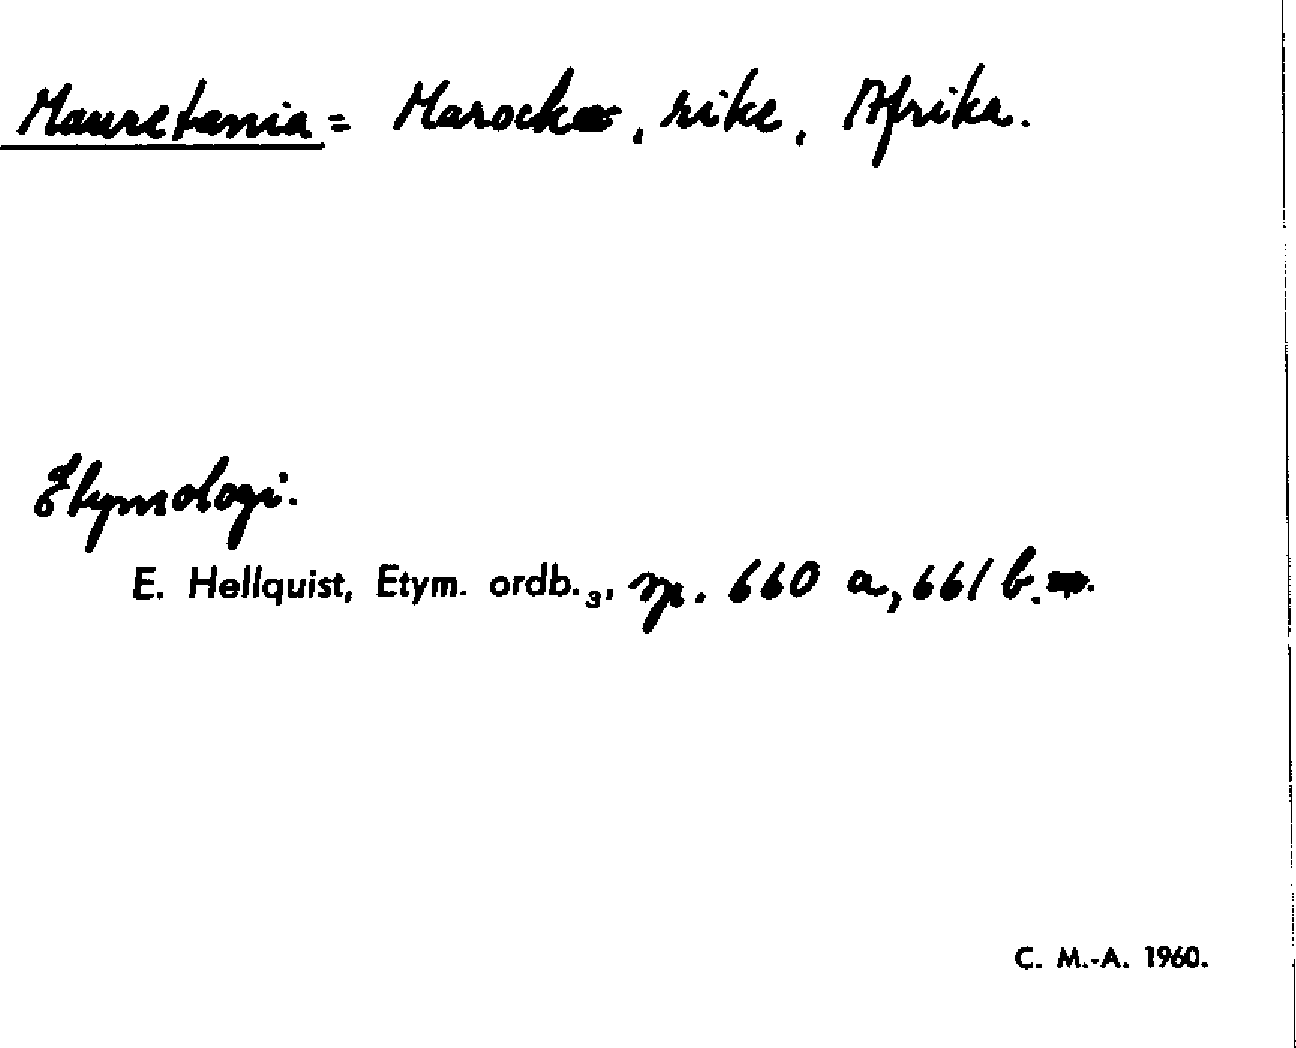 Mauretania = Marocko, rike, Afrika.
Etymologi.
E. Hellquist, Etym. ordb.₃, sp. 660 a, 661 b.
C. M.-A. 1960.